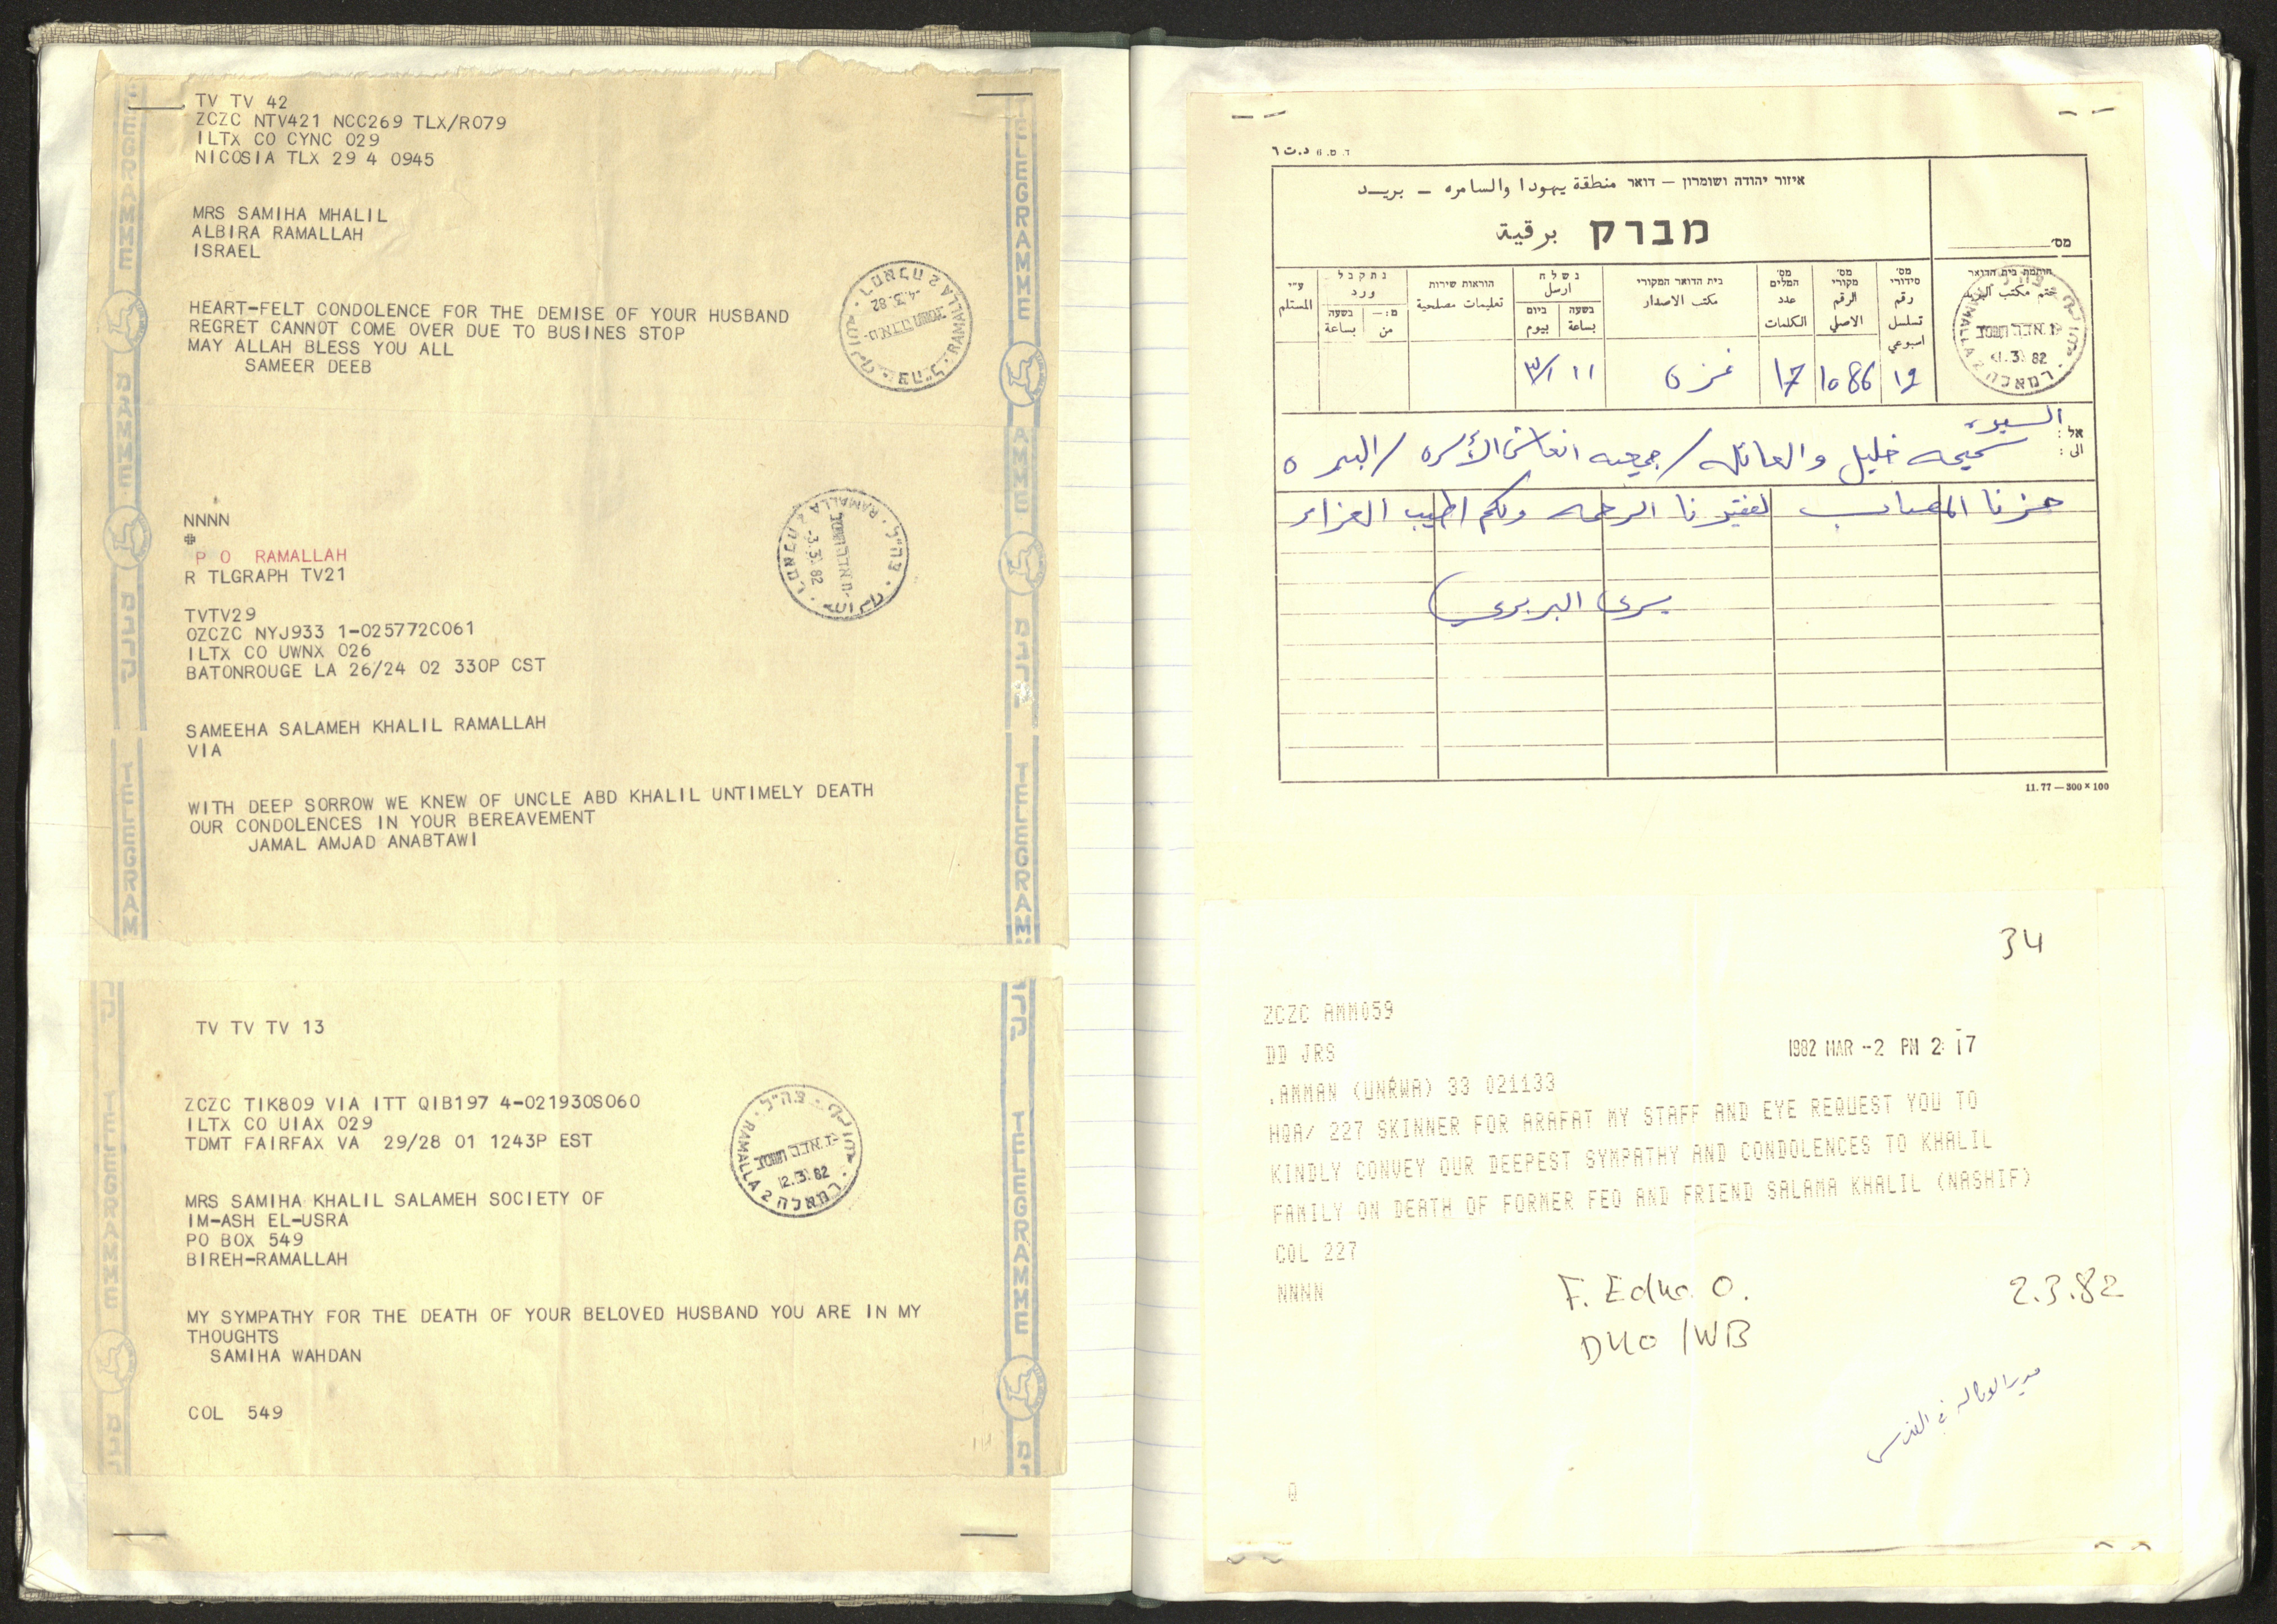 TV TV 42
ZCZC NTV421 NCC269 TLX/R079
ILTX CO CYNC 029
NICOSIA TLX 29 4 0945
MRS SAMIHA MHALIL
ALBIRA RAMALLAH
ISRAEL
HEART-FELT CONDOLENCE FOR THE DEMISE OF YOUR HUSBAND
REGRET CANNOT COME OVER DUE TO BUSINES STOP
MAY ALLAH BLESS YOU ALL
SAMEER DEEB
RAMALLA 2
-4.3.82
NNNN
P O RAMALLAH
R TLGRAPH TV21
TVTV29
OZCZC NYJ933 1-025772C061
ILTX CO UWNX 026
BATONROUGE LA 26/24 02 330P CST
SAMEEHA SALAMEH KHALIL RAMALLAH
VIA
WITH DEEP SORROW WE KNEW OF UNCLE ABD KHALIL UNTIMELY DEATH
OUR CONDOLENCES IN YOUR BEREAVEMENT
JAMAL AMJAD ANABTAWI
RAMALLA 2
-3.3.82
TV TV TV 13
ZCZC TIK809 VIA ITT QIB197 4-021930S060
ILTX CO UIAX 029
TDMT FAIRFAX VA 29/28 01 1243P EST
MRS SAMIHA KHALIL SALAMEH SOCIETY OF
IM-ASH EL-USRA
PO BOX 549
BIREH-RAMALLAH
MY SYMPATHY FOR THE DEATH OF YOUR BELOVED HUSBAND YOU ARE IN MY
THOUGHTS
SAMIHA WAHDAN
COL 549
RAMALLA 2
TELEGRAMME
איזור יהודה ושומרון – דואר منطقة يهودا والسامره – بريد
מברק برقية
מס׳
חותמת בית הדואר
ختم مكتب البريد
מס׳ סידורי رقم تسلسل اسبوعي
מס׳ מקורי الرقم الاصلي
מס׳ המלים عدد الكلمات
בית הדואר המקורי مكتب الاصدار
נשלח ارسل
בשעה بساعة ביום بيوم
הוראות שירות تعليمات مصلحية
נתקבל ورد
בשעה بساعة מ:– من
ע״י المستلم
١٩ 1086 17 غزة ١١ ٣/١
אל : الى :
السيدة
سميحه خليل والعائله / جمعيه انعاش الأسره / البيره
حزننا المصاب لفقيدنا الرحمه ولكم اطيب العزاء
يسرى البربري
11.77 — 300 × 100
34
ZCZC AMM059
DD JRS
1982 MAR -2 PM 2 17
.AMMAN (UNRWA) 33 021133
HQA/ 227 SKINNER FOR ARAFAT MY STAFF AND EYE REQUEST YOU TO
KINDLY CONVEY OUR DEEPEST SYMPATHY AND CONDOLENCES TO KHALIL
FAMILY ON DEATH OF FORMER FEO AND FRIEND SALAMA KHALIL (NASHIF)
COL 227
NNNN
F. Educ. O.
2.3.82
DUO/WB
مدير الوكاله في القدس
Q